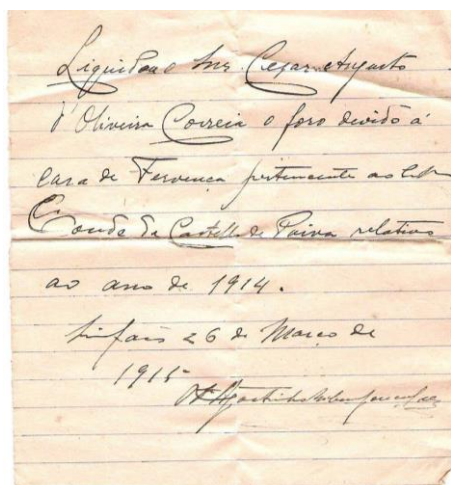 Liquidou o Snr. Cezar Augusto
d'Oliveira Correia o foro devido á
casa de Fervença pertencente ao
Conde de Castello de Paiva relativo
ao ano de 1914.
Sinfães 26 de Março de
1915